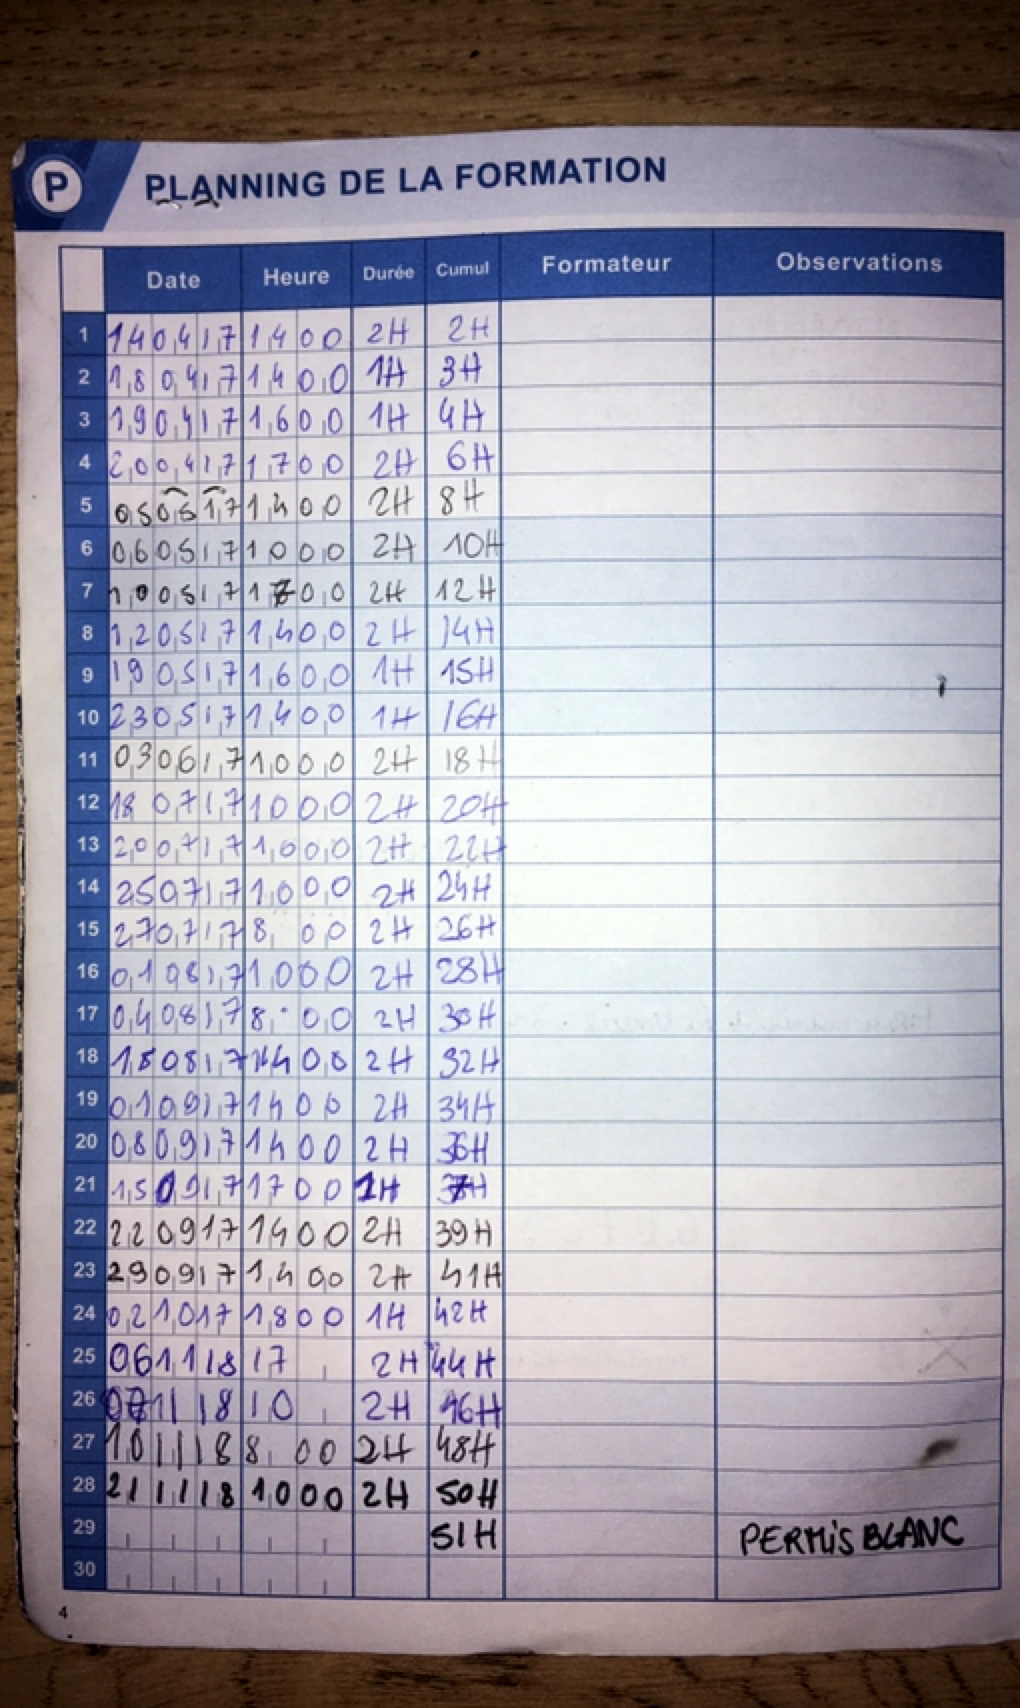 P PLANNING DE LA FORMATION
Date Heure Durée Cumul Formateur Observations
1 140417 1400 2H 2H
2 180417 1400 1H 3H
3 190417 1600 1H 4H
4 200417 1700 2H 6H
5 050517 1400 2H 8H
6 060517 1000 2H 10H
7 100517 1700 2H 12H
8 120517 1400 2H 14H
9 190517 1600 1H 15H
10 230517 1400 1H 16H
11 030617 1000 2H 18H
12 180717 1000 2H 20H
13 200717 1000 2H 22H
14 250717 1000 2H 24H
15 270717 8 00 2H 26H
16 010817 1000 2H 28H
17 040817 8 00 2H 30H
18 180817 1400 2H 32H
19 010917 1400 2H 34H
20 080917 1400 2H 36H
21 150917 1700 1H 37H
22 220917 1400 2H 39H
23 290917 1400 2H 41H
24 021017 1800 1H 42H
25 061118 17 2H 44H
26 071118 10 2H 46H
27 101118 8 00 2H 48H
28 211118 1000 2H 50H
29 51H PERMIS BLANC
30
4